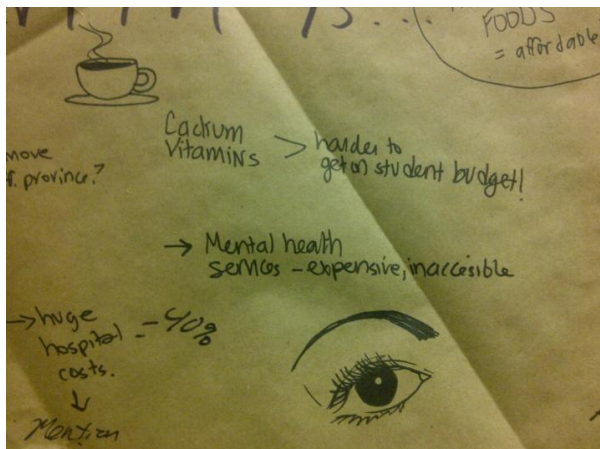 FOODS
= affordable
Cadium
Vitamins > harder to
get on student budget!
move
f. province?
→ Mental health
services - expensive, inaccesible
→ huge
hospital = 40%
costs.
↓
Mention